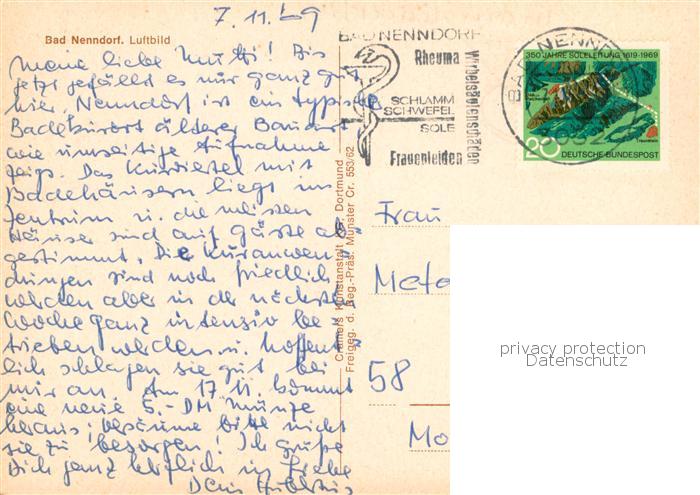 7.11.69
Bad Nenndorf. Luftbild
Meine liebe Mutti! Bis
jetzt gefällt es mir ganz gut
hier. Nenndorf ist ein typischer
Badekurort älterer Bauart
wie umseitige Aufnahme
zeigt. Das Kurviertel mit
Badehäusern liegt im
Zentrum u. die meisten
Häuser sind auf Gäste ab-
gestimmt. Die Kuranwen-
dungen sind noch friedlich
werden aber in der nächsten
Woche ganz intensiv be-
trieben werden u. hoffent-
lich schlagen sie gut bei
mir an. Am 17.11. kommt
eine neue 5.-DM Münze
heraus; versäume bitte nicht
sie zu besorgen! Ich grüße
Dich ganz herzlich in Liebe
Dein Hubertus
Cramers Kunstanstalt Dortmund
Freigeg. d. Reg.-Präs. Münster Nr. 553/62
BAD NENNDORF
Rheuma
Wirbelsäulenschäden
SCHLAMM
SCHWEFEL
SOLE
Frauenleiden
BAD NENND
350 JAHRE SOLELEITUNG 1619-1969
20 DEUTSCHE BUNDESPOST
Frau
58
privacy protection
Datenschutz